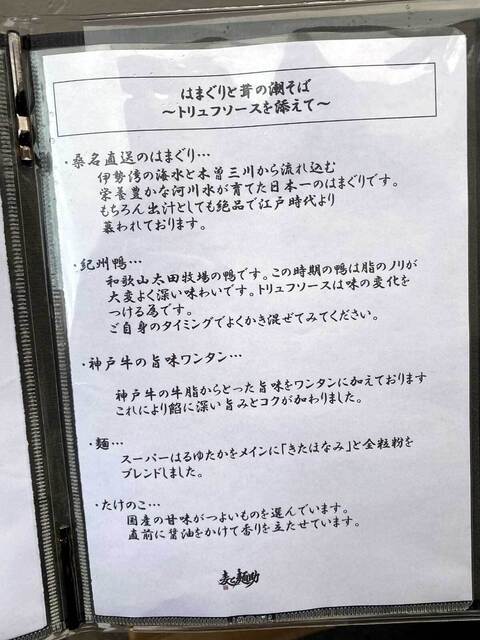 はまぐりと茸の潮そば
～トリュフソースを添えて～
・桑名直送のはまぐり…
伊勢湾の海水と木曽三川から流れ込む
栄養豊かな河川水が育てた日本一のはまぐりです。
もちろん出汁としても絶品で江戸時代より
慕われております。
・紀州鴨…
和歌山太田牧場の鴨です。この時期の鴨は脂のノリが
大変よく深い味わいです。トリュフソースは味の変化を
つける為です。
ご自身のタイミングでよくかき混ぜてみてください。
・神戸牛の旨味ワンタン…
神戸牛の牛脂からとった旨味をワンタンに加えております
これにより餡に深い旨みとコクが加わりました。
・麺…
スーパーはるゆたかをメインに「きたほなみ」と全粒粉を
ブレンドしました。
・たけのこ…
国産の甘味がつよいものを選んでいます。
直前に醤油をかけて香りを立たせています。
麦と麺助